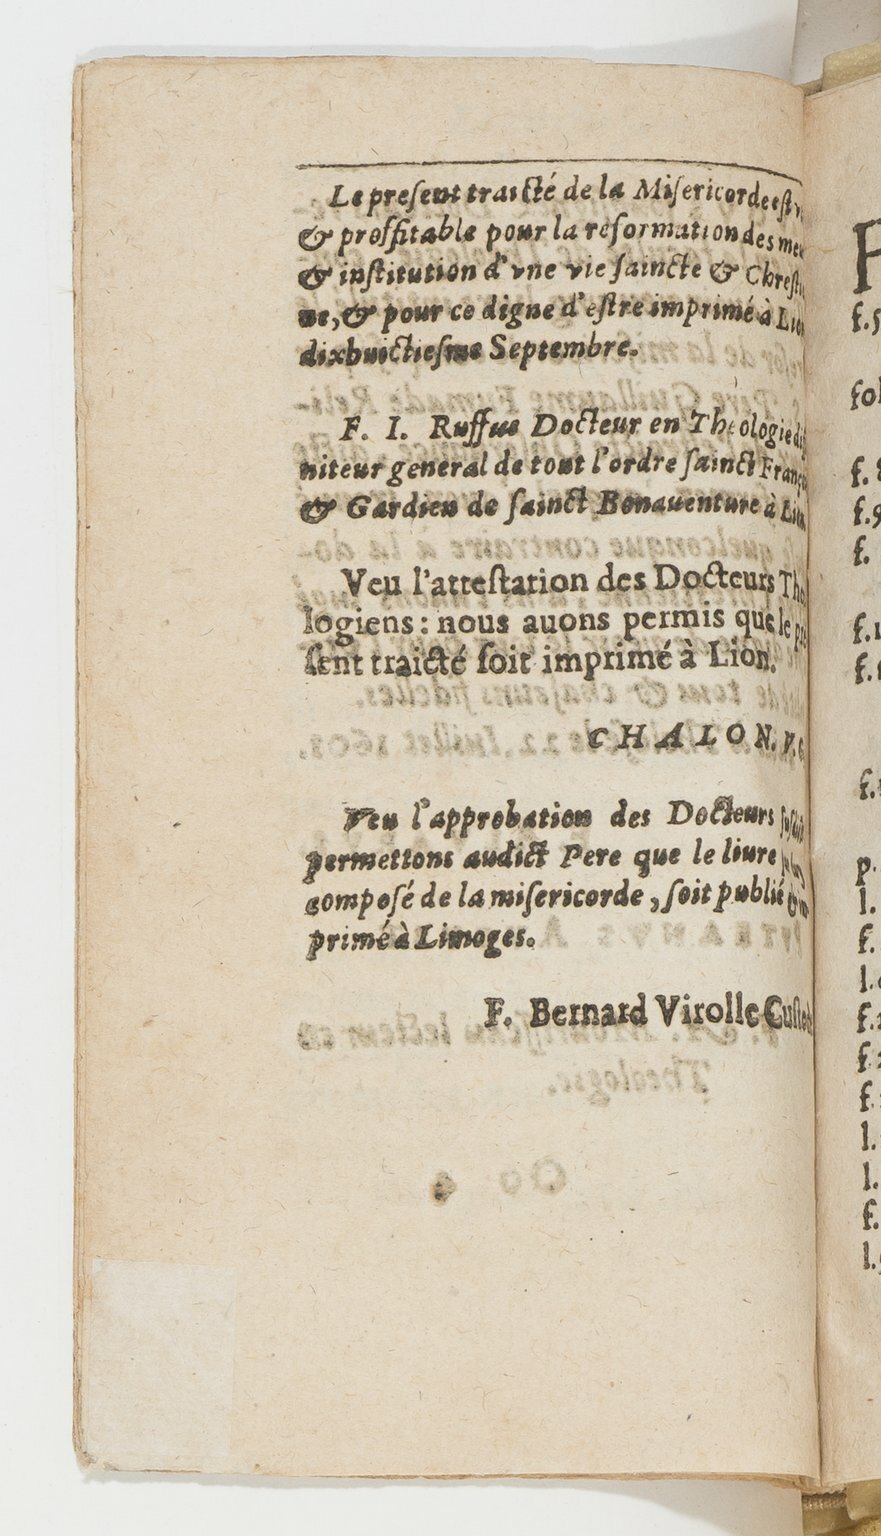 Le preſent traicté de la Miſericorde eſt
& proffitable pour la reformation des
& inſtitution d'vne vie ſaincte &
ne, & pour ce digne d'eſtre imprimé à
dixhuictieſme Septembre.
F. I. Ruffus Docteur en Theologie
niteur general de tout l'ordre ſainct
& Gardien de ſainct Bonauenture à
Veu l'atteſtation des Docteurs
logiens: nous auons permis que le
ſent traicté ſoit imprimé à Lion.
CHALON. V.
Veu l'approbation des Docteurs
permettons audict Pere que le liure
compoſé de la miſericorde, ſoit publié
primé à Limoges.
F. Bernard Virolle